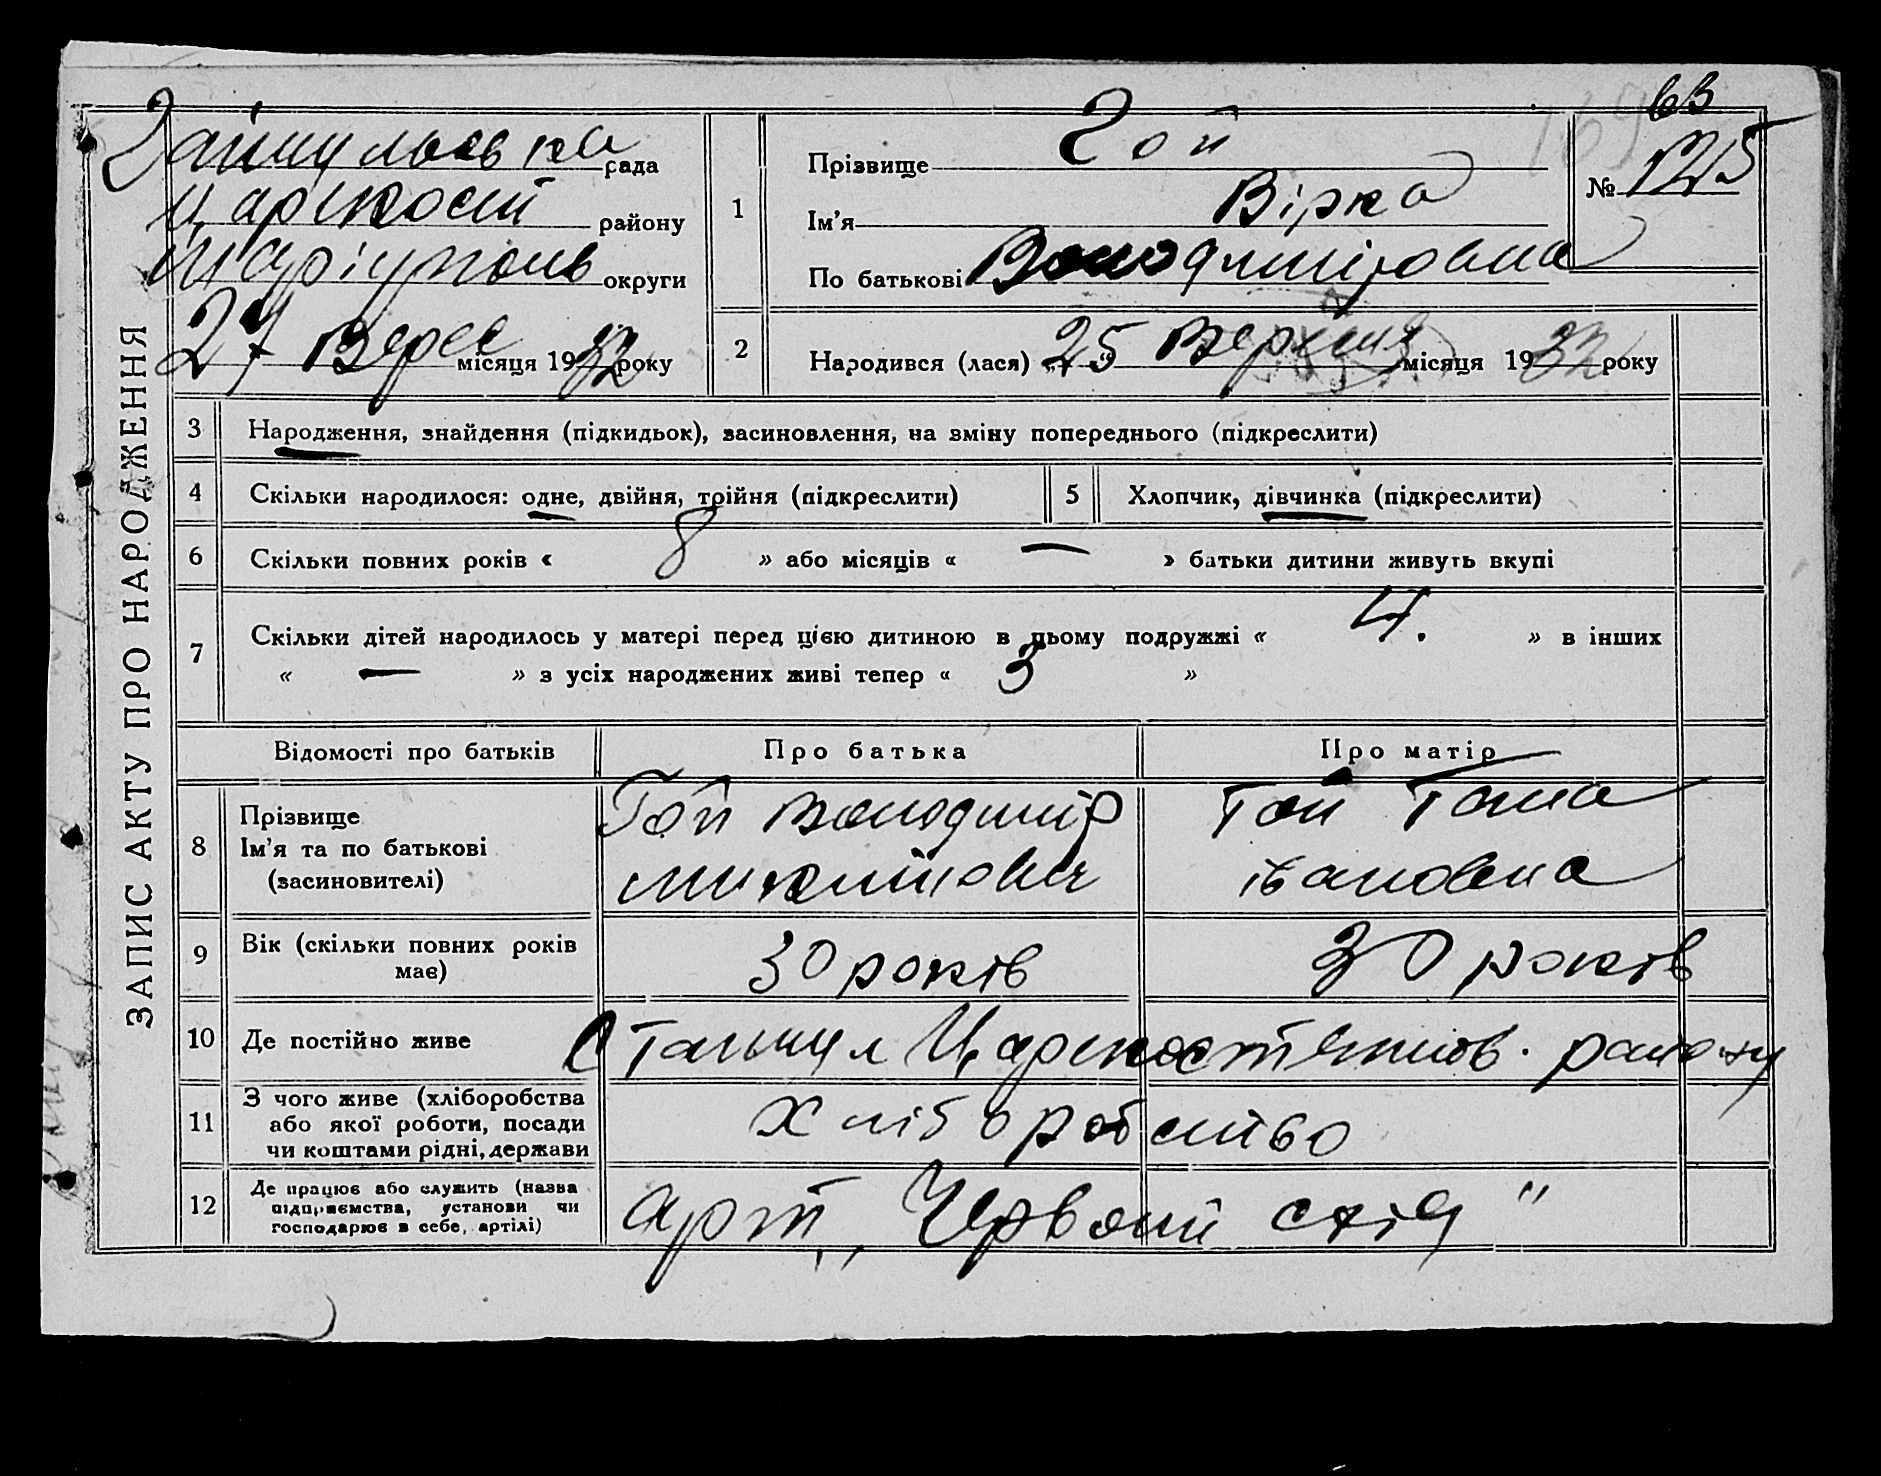 ЗАПИС АКТУ ПРО НАРОДЖЕННЯ
рада
району
округи
27 Верес місяця 1932 року
1
Прізвище Гой
Ім'я Вірка
По батькові Володимировна
63
№ 125
2
Народився (лася) « 25 Верхсня місяця 1932 року
3 Народження, знайдення (підкидьок), засиновлення, на зміну попереднього (підкреслити)
4 Скільки народилося: одне, двійня, трійня (підкреслити)
5 Хлопчик, дівчинка (підкреслити)
6 Скільки повних років « 8 » або місяців « — » батьки дитини живуть вкупі
7 Скільки дітей народилось у матері перед цією дитиною в цьому подружжі « 4. » в інших
« — » з усіх народжених живі тепер « 3 »
Відомості про батьків
Про батька
Про матір
8
Прізвище
Ім'я та по батькові
(засиновителі)
Гой Володимір
Гой
івановна
9
Вік (скільки повних років
має)
30 років
30 років
10 Де постійно живе
району
11
З чого живе (хліборобства
або якої роботи, посади
чи коштами рідні, держави
Хліборобство
12
Де працює або служить (назва
підприємства, установи чи
господарює в себе, артілі)
арт „Червоний схід"